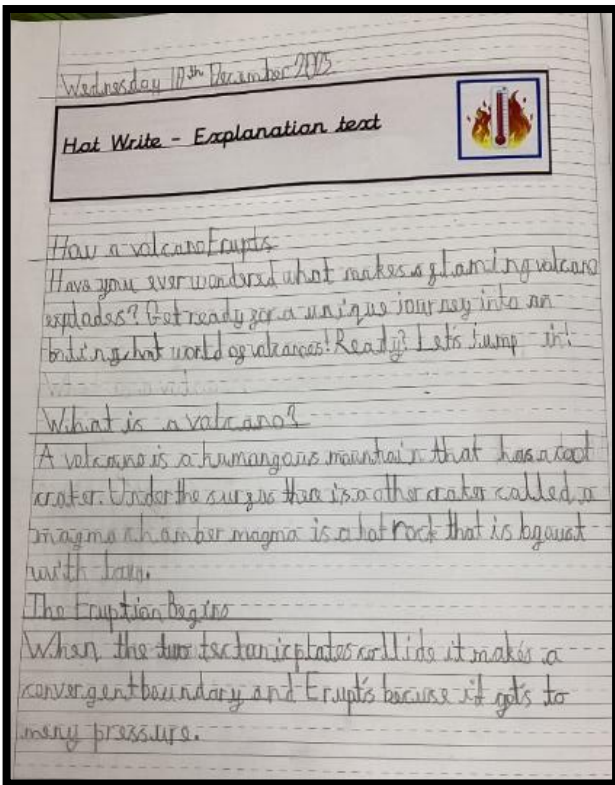 Wednesday 10th December 2025
Hot Write - Explanation text
How a volcano Erupts
Have you ever wondered what makes a flaming volcano
explodes? Get ready for a unique journey into an
hot world of volcanoes! Ready? Let's jump in!
What is a volcano?
A volcano is a humangous mountain that has a
crater. Under the there is a other crater called a
magma chamber magma is a hot rock that is
with
The Eruption Begins
When the two tectonic plates collide it makes a
convergent boundary and Erupts becuse it gets to
meny pressure.